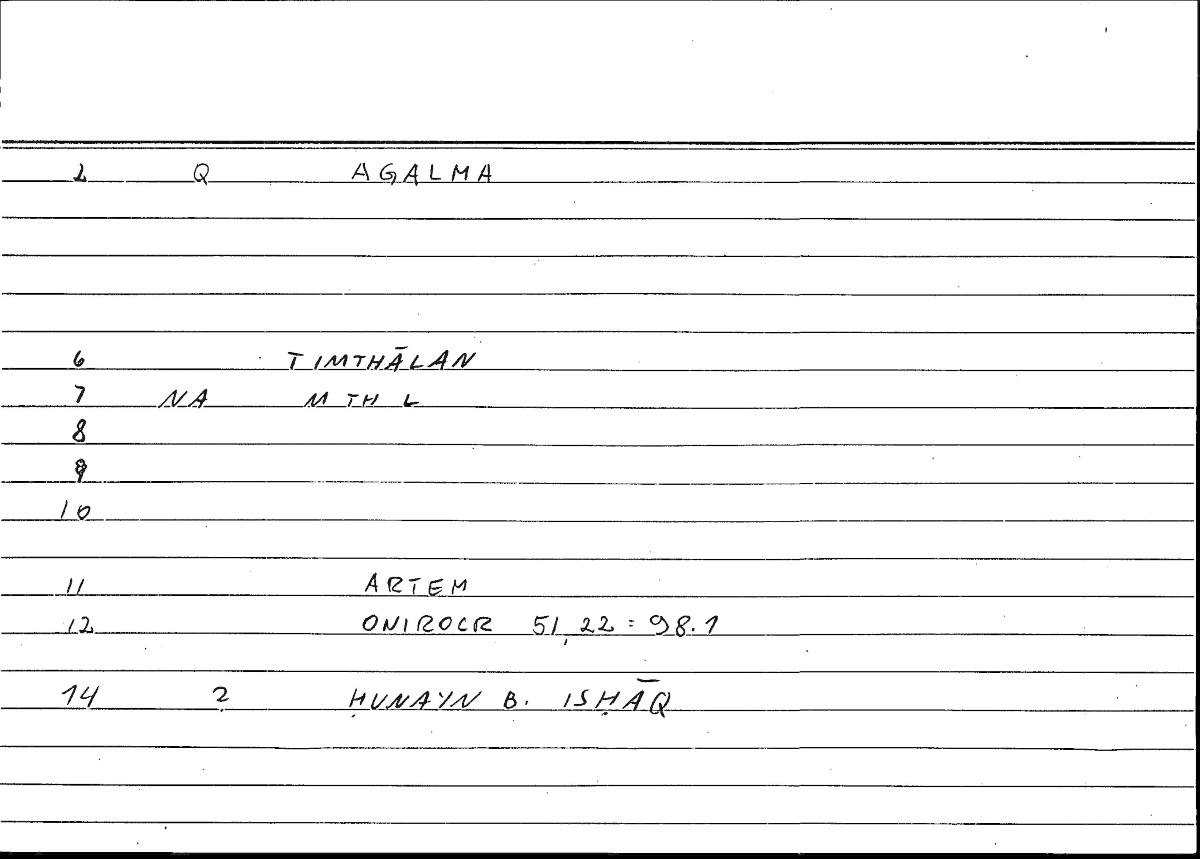 1 Q AGALMA
6 TIMTHĀLAN
7 NA M TH L
8
9
10
11 ARTEM
12 ONIROCR 51,22 = 98.1
14 2 ḤUNAYN B. ISḤĀQ